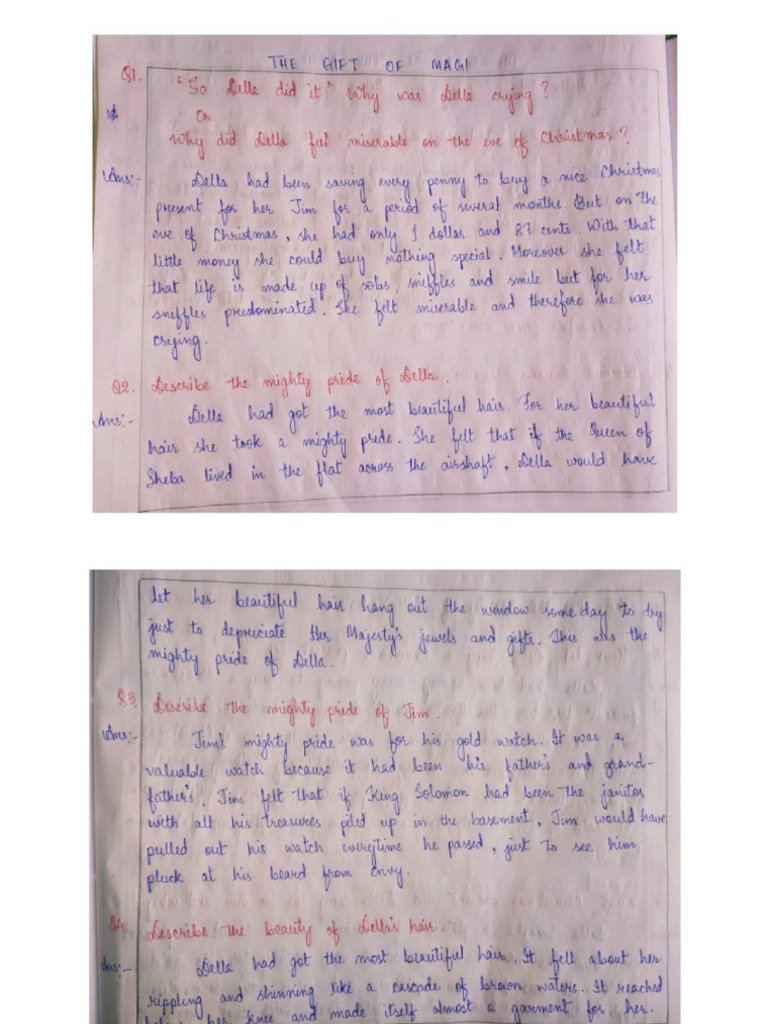 THE GIFT OF MAGI
Q1. "So Della did it" Why was Della crying?
Or
Why did Della feel miserable on the eve of Christmas?
Ans:- Della had been saving every penny to buy a nice Christmas
present for her Jim for a period of several months. But on the
eve of Christmas, she had only 1 dollar and 87 cents. With that
little money she could buy nothing special. Moreover she felt
that life is made up of sobs, sniffles and smile but for her
sniffles predominated. She felt miserable and therefore she was
crying.
Q2. Describe the mighty pride of Della.
Ans:- Della had got the most beautiful hair. For her beautiful
hair she took a mighty pride. She felt that if the Queen of
Sheba lived in the flat across the airshaft, Della would have
let her beautiful hair hang out the window some day to dry
just to depreciate Her Majesty's jewels and gifts. This was the
mighty pride of Della.
Q3. Describe the mighty pride of Jim.
Ans:- Jim's mighty pride was for his gold watch. It was a
valuable watch because it had been his father's and grand-
father's. Jim felt that if King Solomon had been the janitor
with all his treasures piled up in the basement, Jim would have
pulled out his watch everytime he passed, just to see him
pluck at his beard from envy.
Q4. Describe the beauty of Della's hair.
Ans:- Della had got the most beautiful hair. It fell about her
rippling and shinning like a cascade of brown waters. It reached
her knee and made itself almost a garment for her.